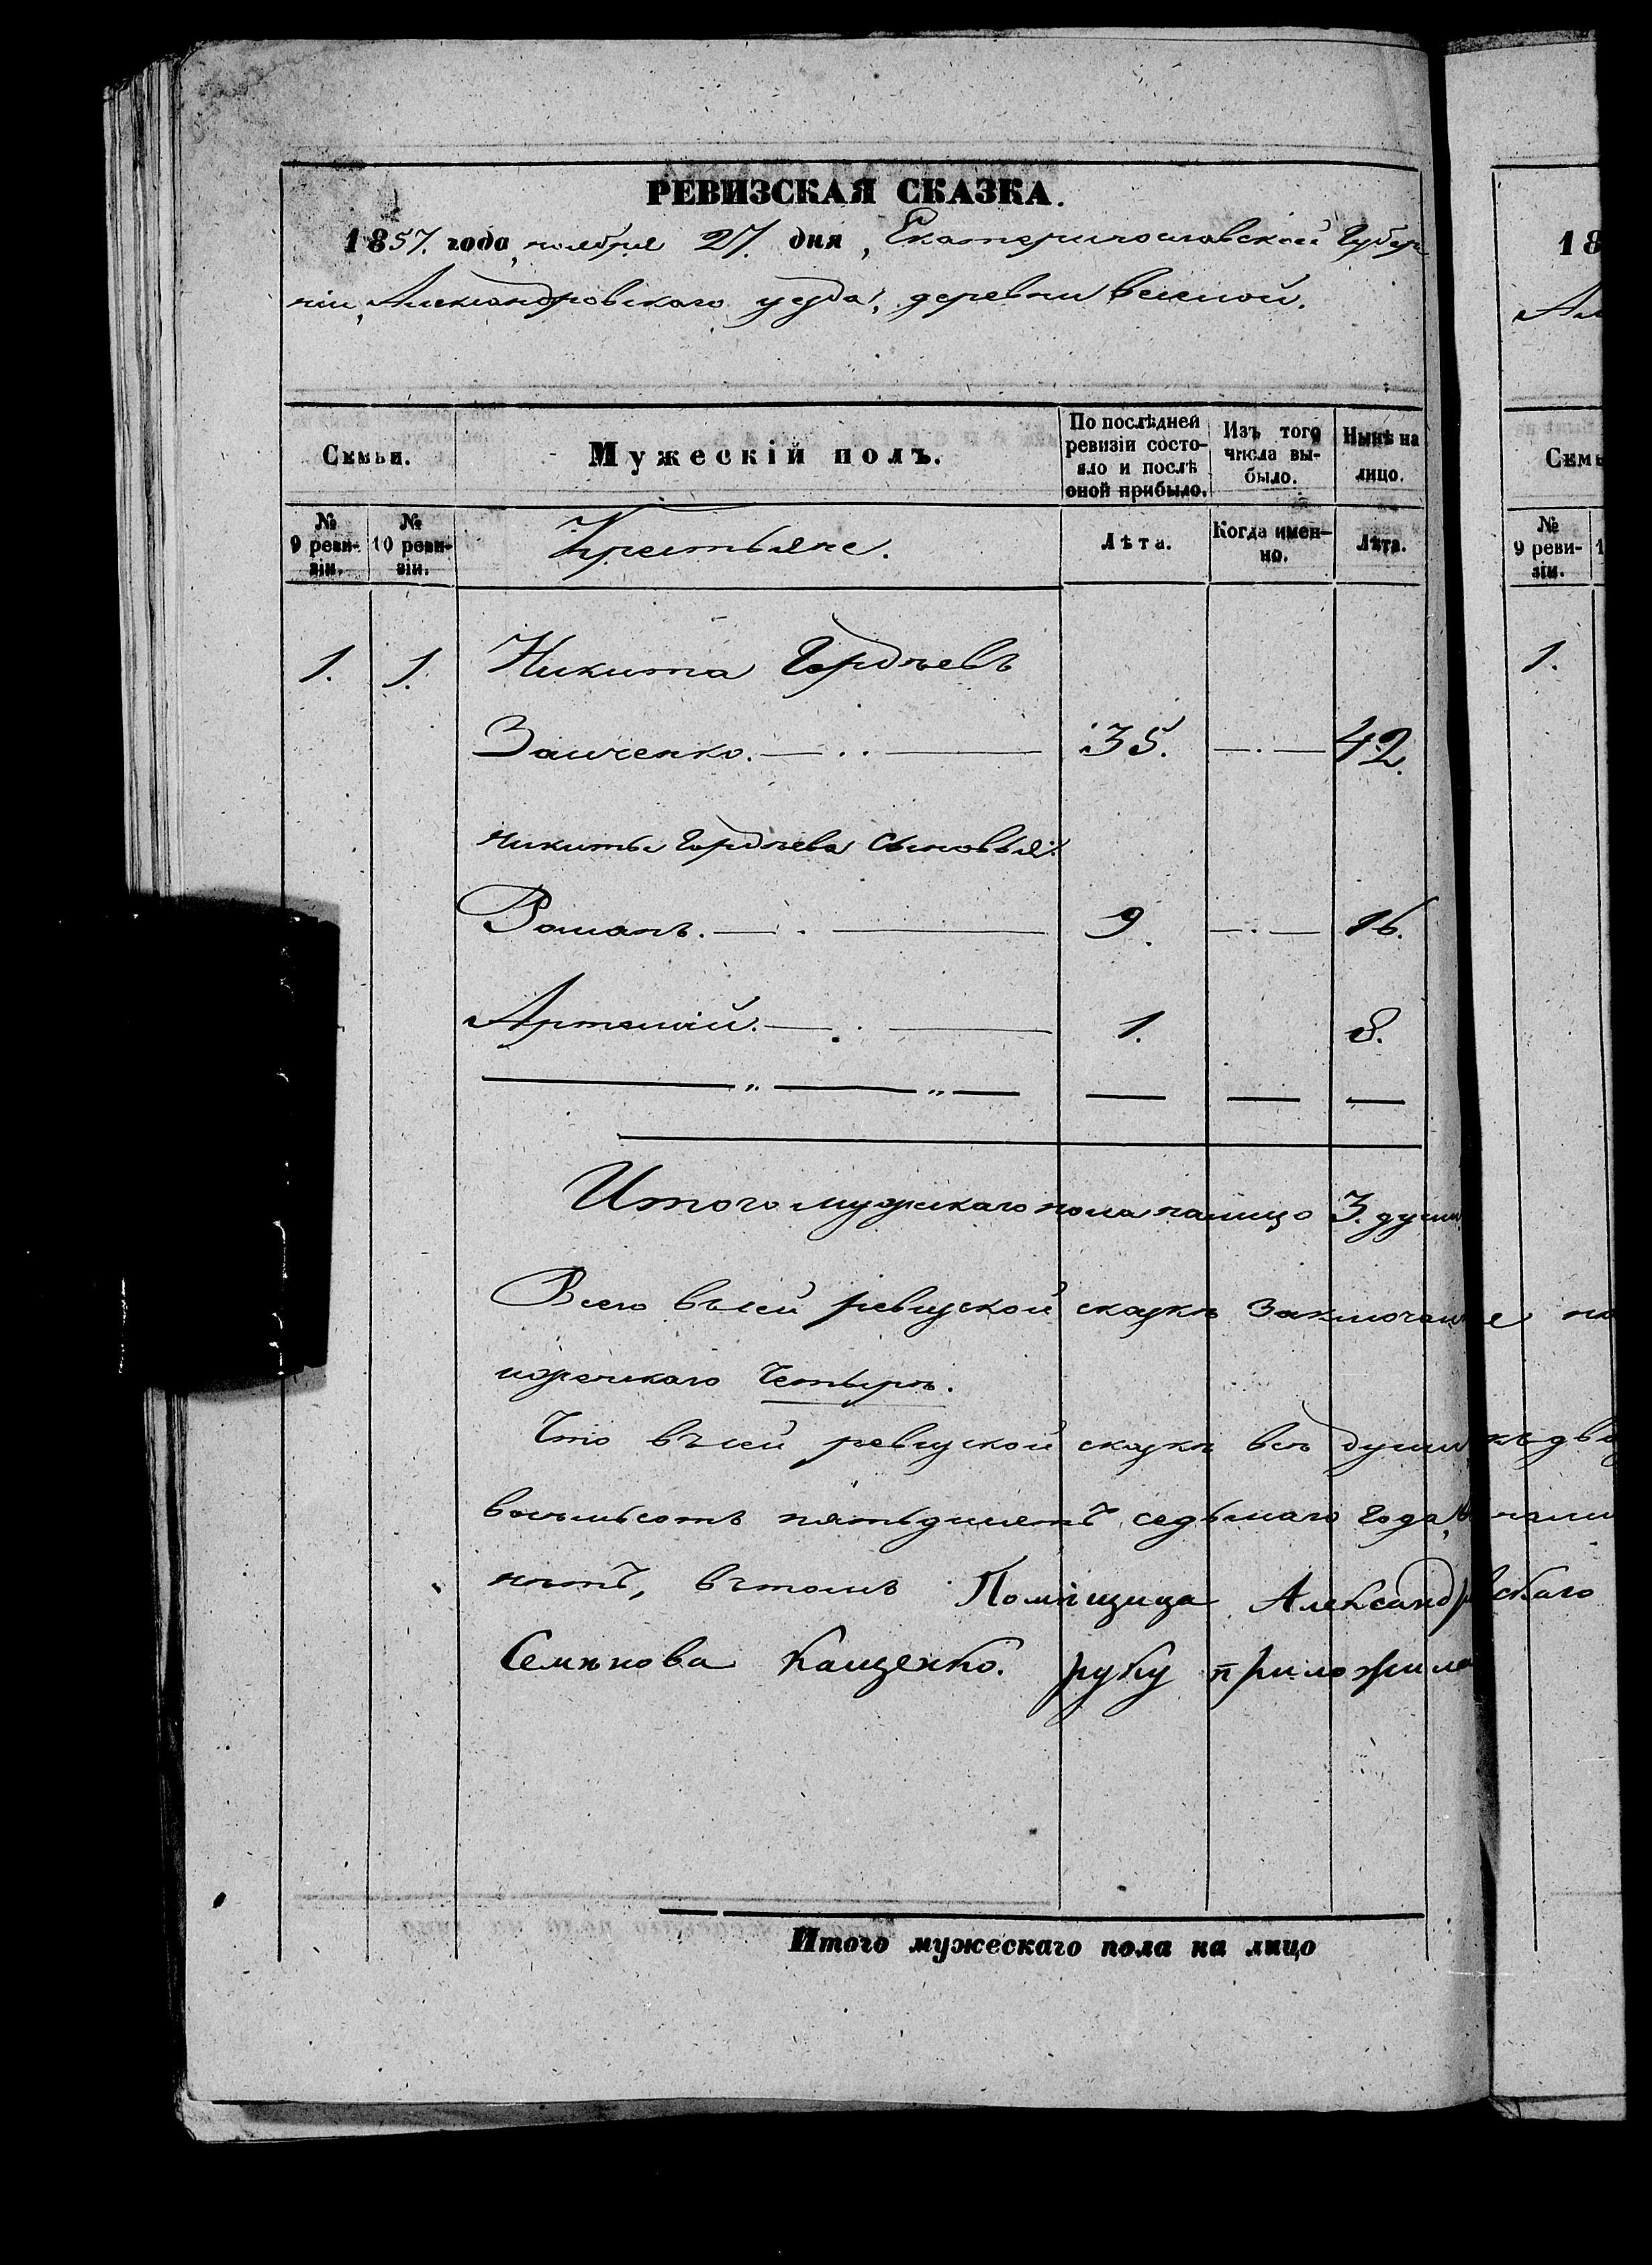 РЕВИЗСКАЯ СКАЗКА.
1857. года, ноября 27. дня, Екатеринославской Губер
ніи, Александровскаго уезда, деревни Веселой.
Семьи.
Мужескій полъ.
По послѣдней ревизіи состо-
яло и послѣ
оной прибыло.
Изъ того
числа вы-
было.
Нынѣ на
лицо.
№ 9 реви-
зіи.
№ 10 реви-
зіи.
Крестьяне.
Лѣта.
Когда имен-
но.
Лѣта.
1. 1. Никита Гордѣевъ
Заиченко. 35. 42.
Никиты Гордѣева Сыновья:
Романъ. 9. 16.
Артемій. 1. 8.
Итого мужскаго пола налицо 3. души
Всего въ сей ревизской сказкѣ Заключаи е на
и женскаго Четыре.
Что въ сей ревизской сказкѣ всѣ души, къ
восемьсотъ пятьдесятъ седьмаго года, нали
нѣтъ, въ томъ Помѣщица Александр скаго
Семѣнова Кащенко. руку приложила
Итого мужескаго пола на лицо
18
Ал
Семь
№
9 реви-
зіи.
1
1.